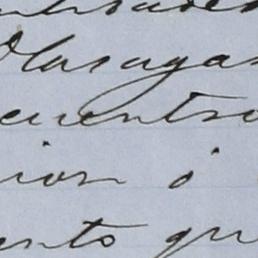 Olasagas
cuentro
ion ó
ento qu